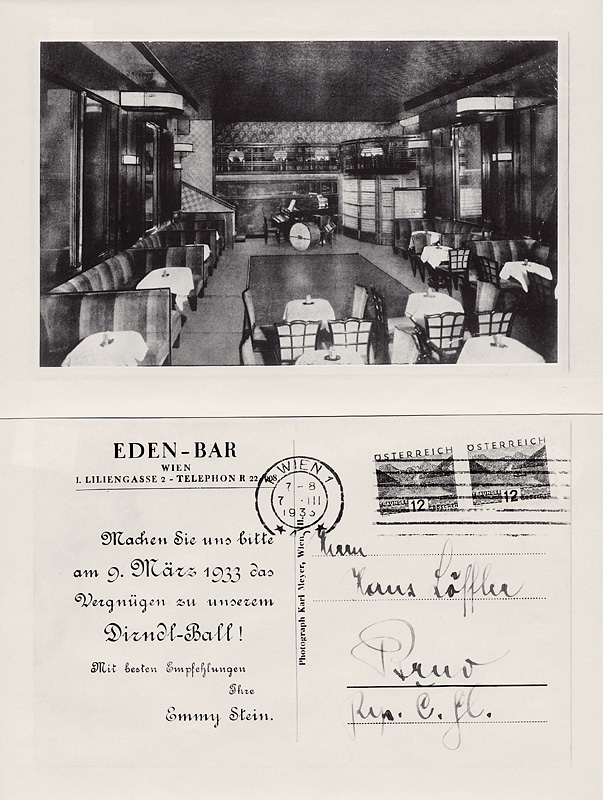 EDEN-BAR
WIEN
I. LILIENGASSE 2 - TELEPHON R 22
Machen Sie uns bitte
am 9. März 1933 das
Vergnügen zu unserem
Dirndl-Ball!
Mit besten Empfehlungen
Ihre
Emmy Stein.
Photograph Karl Meyer, Wien
WIEN 1
7-8
7 III
1933
ÖSTERREICH
12 GROSCHEN
ÖSTERREICH
12 GROSCHEN
Herrn
Hans Löffler
Brno
Rep. Č. Sl.